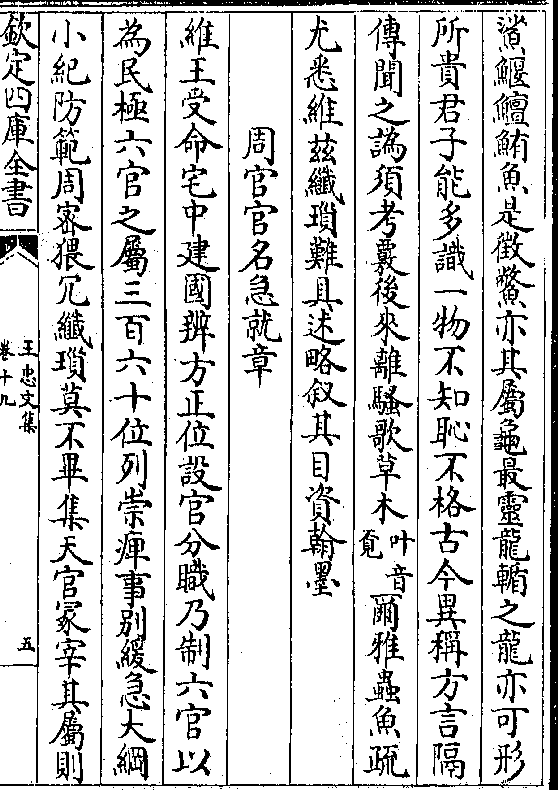 鯊鰋鱣鮪魚是徵鱉亦其屬龜最靈龍輴之龍亦可形
所貴君子能多識一物不知恥不格古今異稱方言隔
傳聞之譌須考覈後來離騷歌草木叶音覔爾雅蟲魚疏
尤悉維茲纖瑣難具述略叙其目資翰墨
周官官名急就章
維王受命宅中建國辨方正位設官分職乃制六官以
為民極六官之屬三百六十位列崇庳事别緩急大綱
小紀防範周宻猥冗纖瑣莫不畢集天官冢宰其屬則
欽定四庫全書
王忠文集
卷十九
五